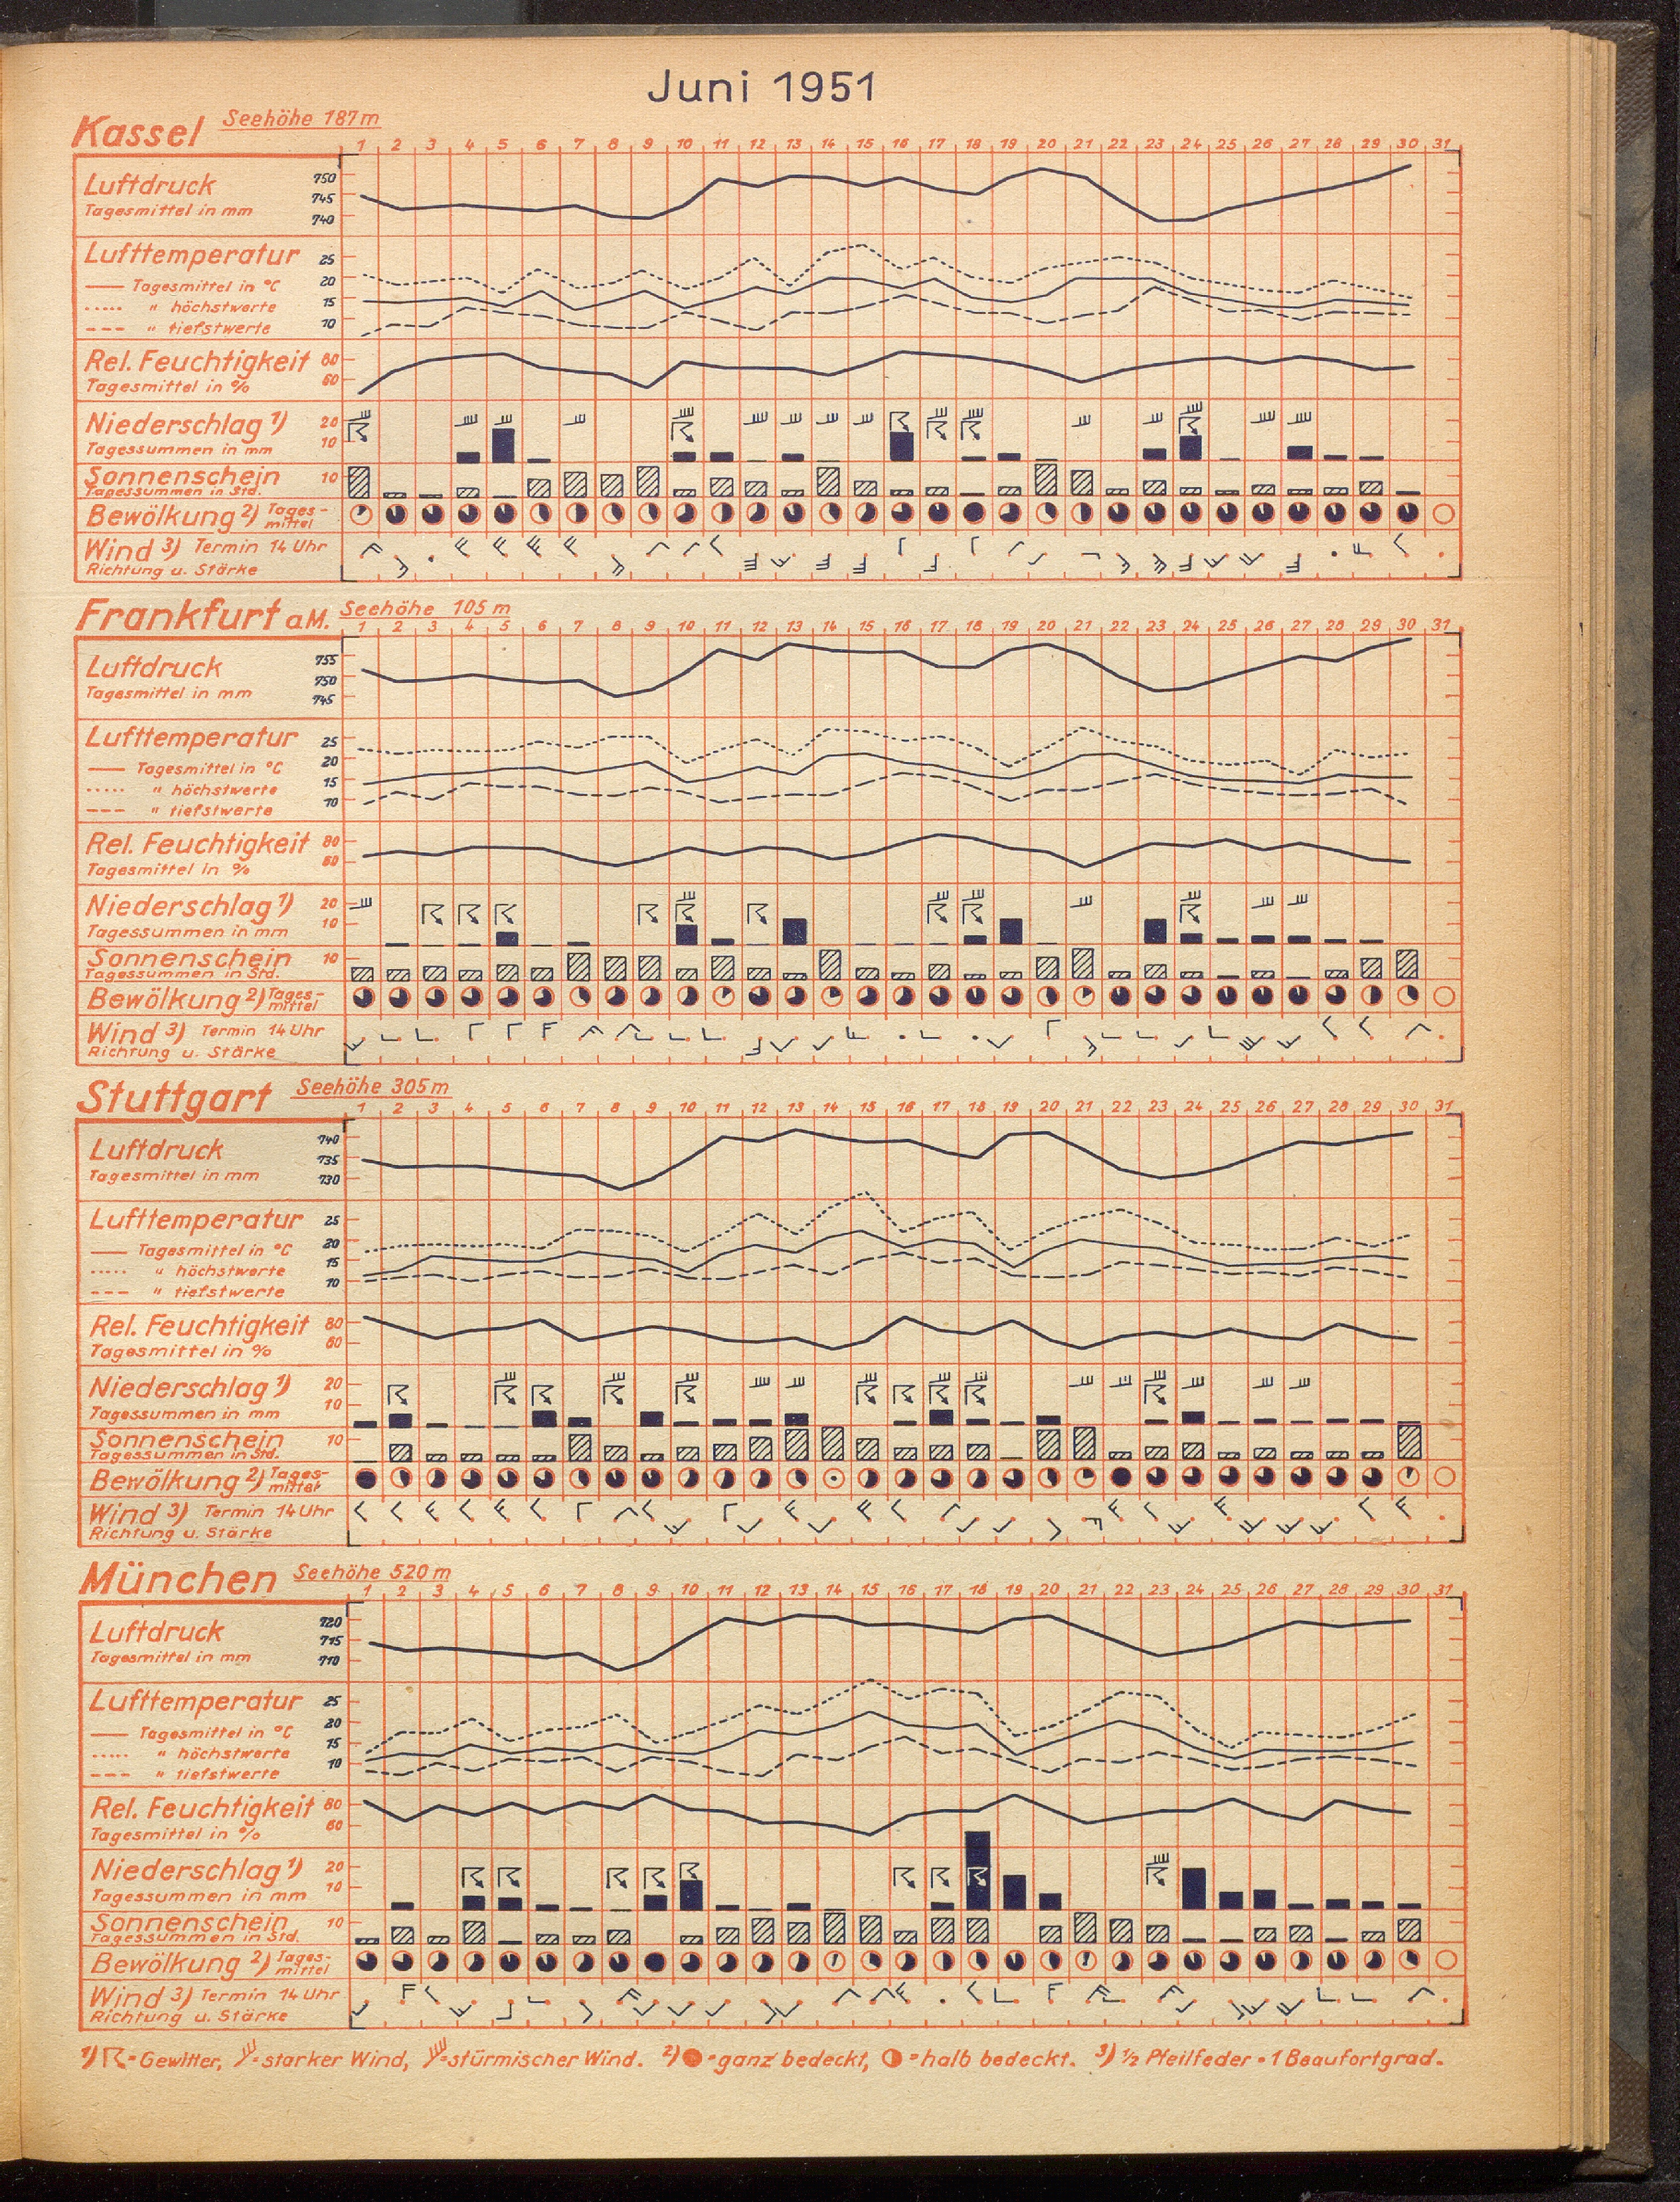 Juni 1951
Kassel Seehöhe 187 m
1 2 3 4 5 6 7 8 9 10 11 12 13 14 15 16 17 18 19 20 21 22 23 24 25 26 27 28 29 30 31
Luftdruck 750
745
Tagesmittel in mm 740
Lufttemperatur 25
— Tagesmittel in °C 20
..... " höchstwerte 15
--- " tiefstwerte 10
Rel. Feuchtigkeit 80
Tagesmittel in % 60
Niederschlag 1) 20
Tagessummen in mm 10
Sonnenschein 10
Tagessummen in Std.
Bewölkung 2) Tages-
mittel
Wind 3) Termin 14 Uhr
Richtung u. Stärke
Frankfurt a.M. Seehöhe 105 m
1 2 3 4 5 6 7 8 9 10 11 12 13 14 15 16 17 18 19 20 21 22 23 24 25 26 27 28 29 30 31
Luftdruck 755
750
Tagesmittel in mm 745
Lufttemperatur 25
— Tagesmittel in °C 20
..... " höchstwerte 15
--- " tiefstwerte 10
Rel. Feuchtigkeit 80
Tagesmittel in % 60
Niederschlag 1) 20
Tagessummen in mm 10
Sonnenschein 10
Tagessummen in Std.
Bewölkung 2) Tages-
mittel
Wind 3) Termin 14 Uhr
Richtung u. Stärke
Stuttgart Seehöhe 305 m
1 2 3 4 5 6 7 8 9 10 11 12 13 14 15 16 17 18 19 20 21 22 23 24 25 26 27 28 29 30 31
Luftdruck 740
735
Tagesmittel in mm 730
Lufttemperatur 25
— Tagesmittel in °C 20
..... " höchstwerte 15
--- " tiefstwerte 10
Rel. Feuchtigkeit 80
Tagesmittel in % 60
Niederschlag 1) 20
Tagessummen in mm 10
Sonnenschein 10
Tagessummen in Std.
Bewölkung 2) Tages-
mittel
Wind 3) Termin 14 Uhr
Richtung u. Stärke
München Seehöhe 520 m
1 2 3 4 5 6 7 8 9 10 11 12 13 14 15 16 17 18 19 20 21 22 23 24 25 26 27 28 29 30 31
Luftdruck 720
715
Tagesmittel in mm 710
Lufttemperatur 25
— Tagesmittel in °C 20
..... " höchstwerte 15
--- " tiefstwerte 10
Rel. Feuchtigkeit 80
Tagesmittel in % 60
Niederschlag 1) 20
Tagessummen in mm 10
Sonnenschein 10
Tagessummen in Std.
Bewölkung 2) Tages-
mittel
Wind 3) Termin 14 Uhr
Richtung u. Stärke
1) = Gewitter, = starker Wind, = stürmischer Wind. 2) = ganz bedeckt, = halb bedeckt. 3) ½ Pfeilfeder = 1 Beaufortgrad.